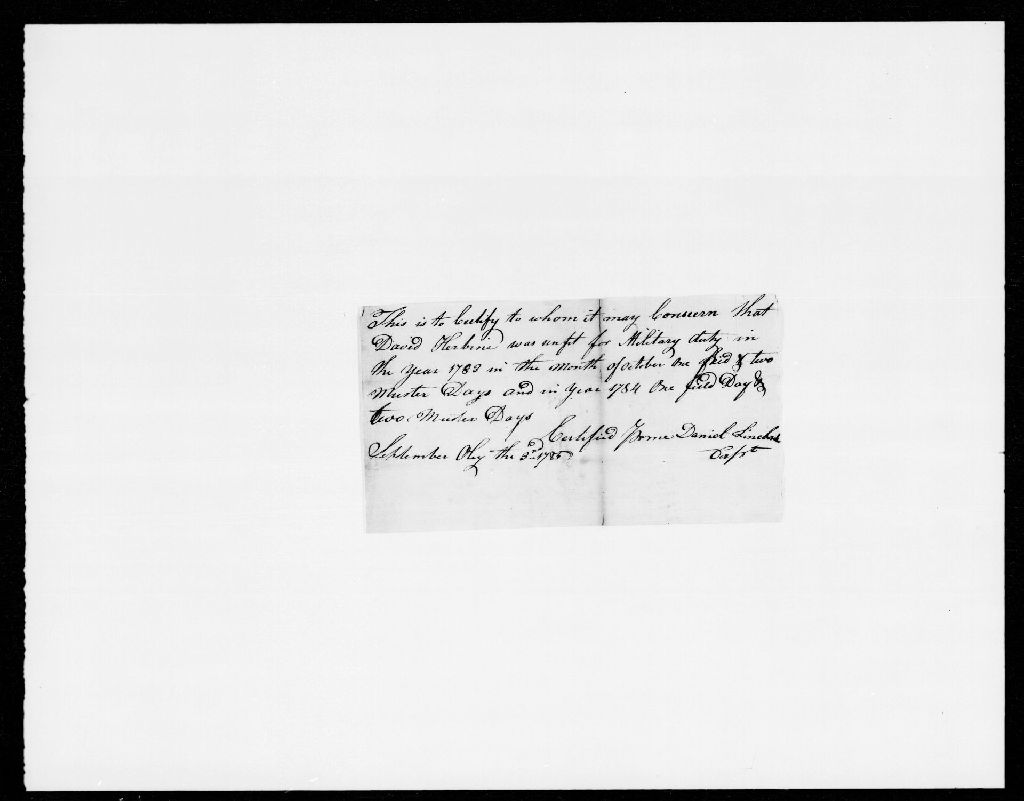 This is to Certify to whom it may Conscern that
David Herbine was unfit for Military duty in
the year 1783 in the month of october one field & two
Muster Days and in year 1784 One field Day &
two Muster Days
Certified P me Daniel
September the 3rd 1785 Capt